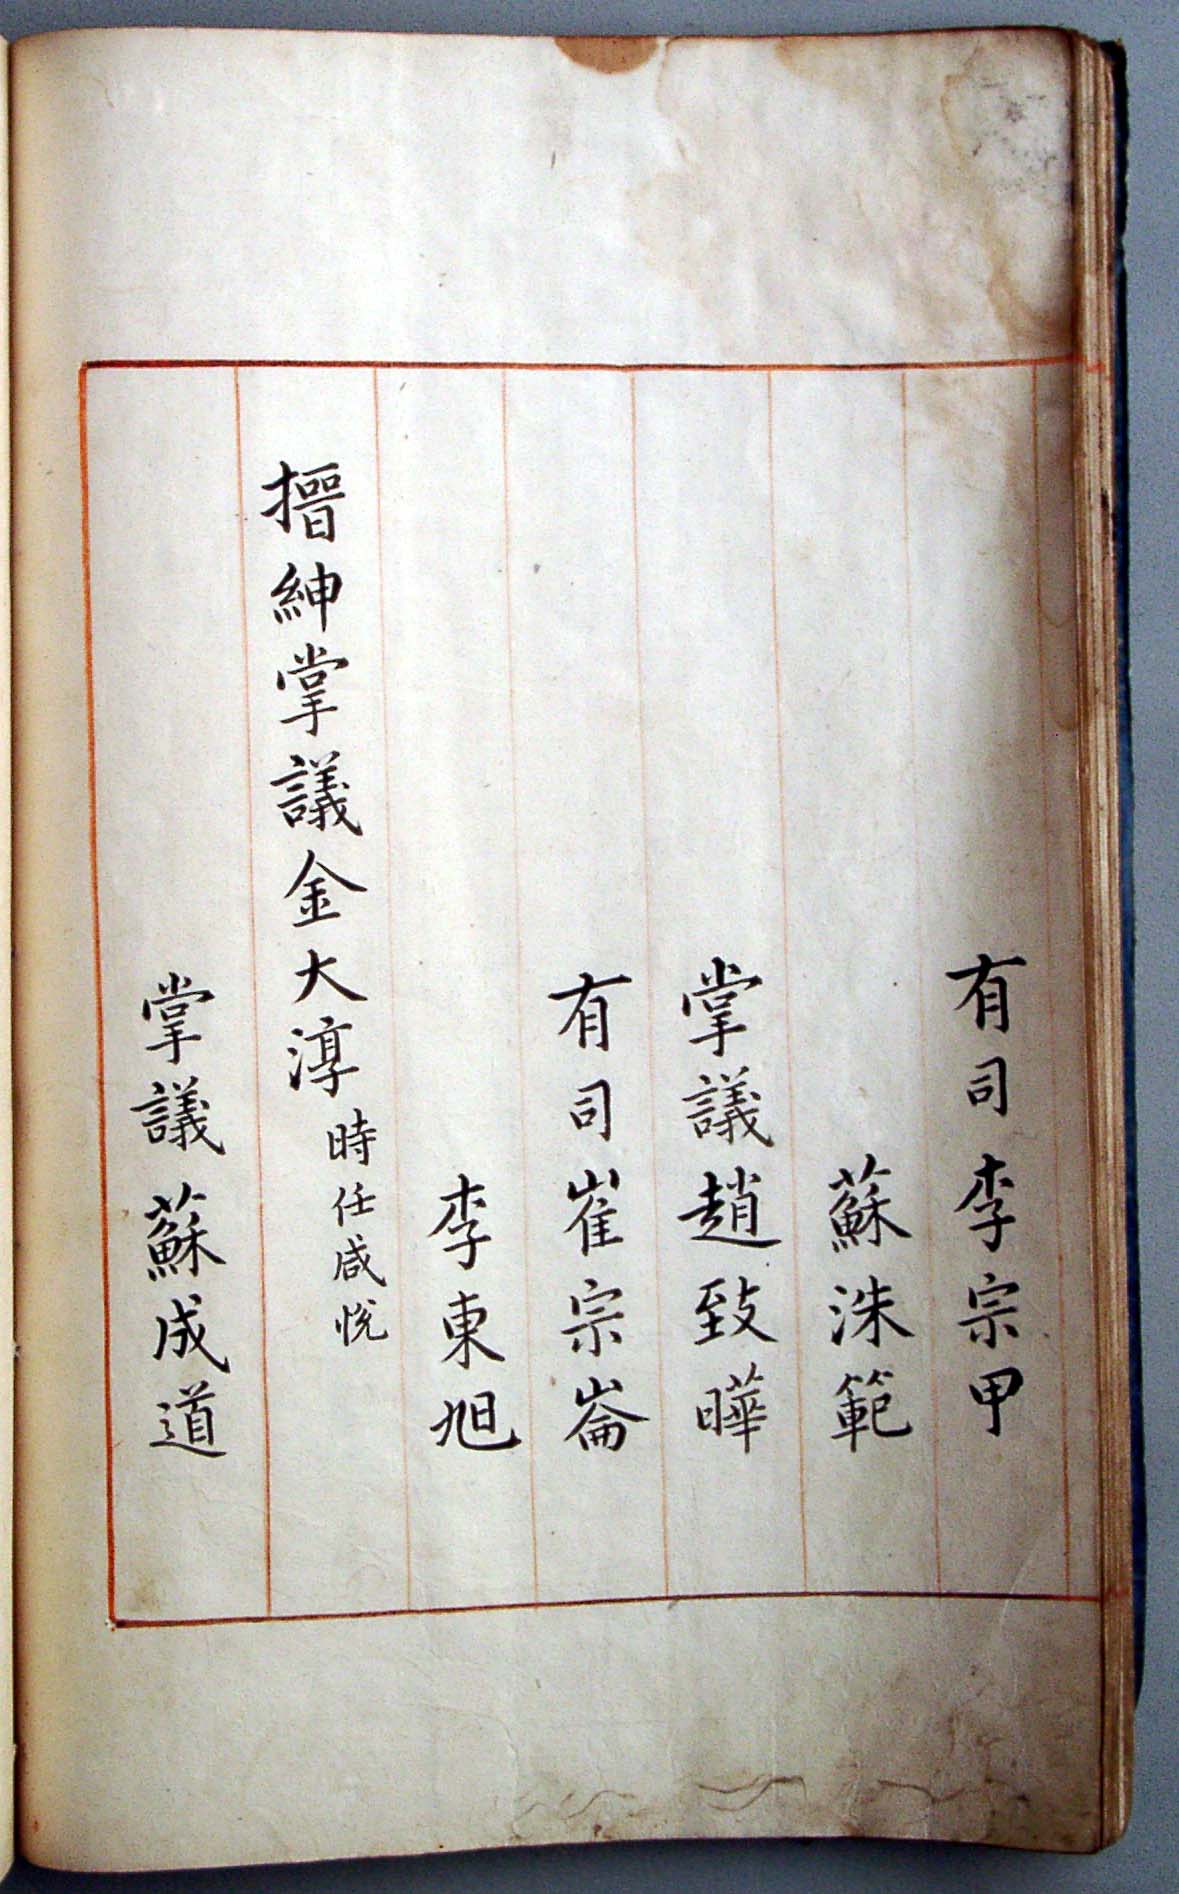 有司李宗甲
蘇洙範
掌議趙致曄
有司崔宗崙
李東旭
搢紳掌議金大淳時任咸悅
掌議蘇成道